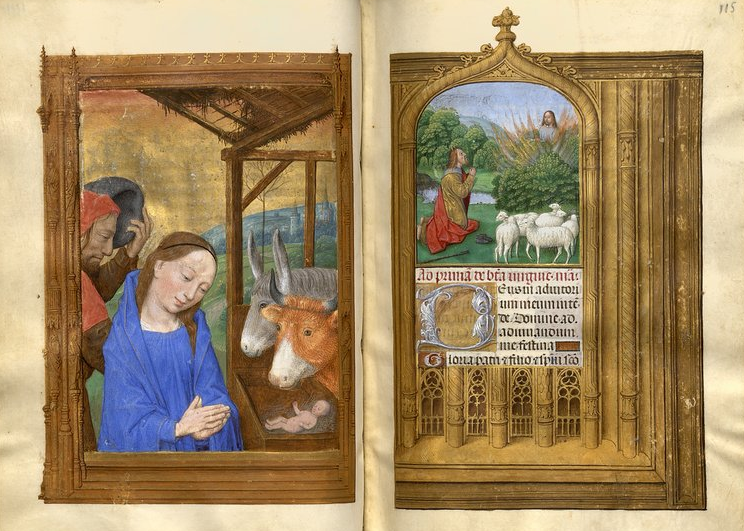 115
Ad primā de btā uirgīe mīa:
Deus in adiutori
um meum intē
de Domine ad
adiuuandum
me festina
Gloria patri et filio et spūi sco